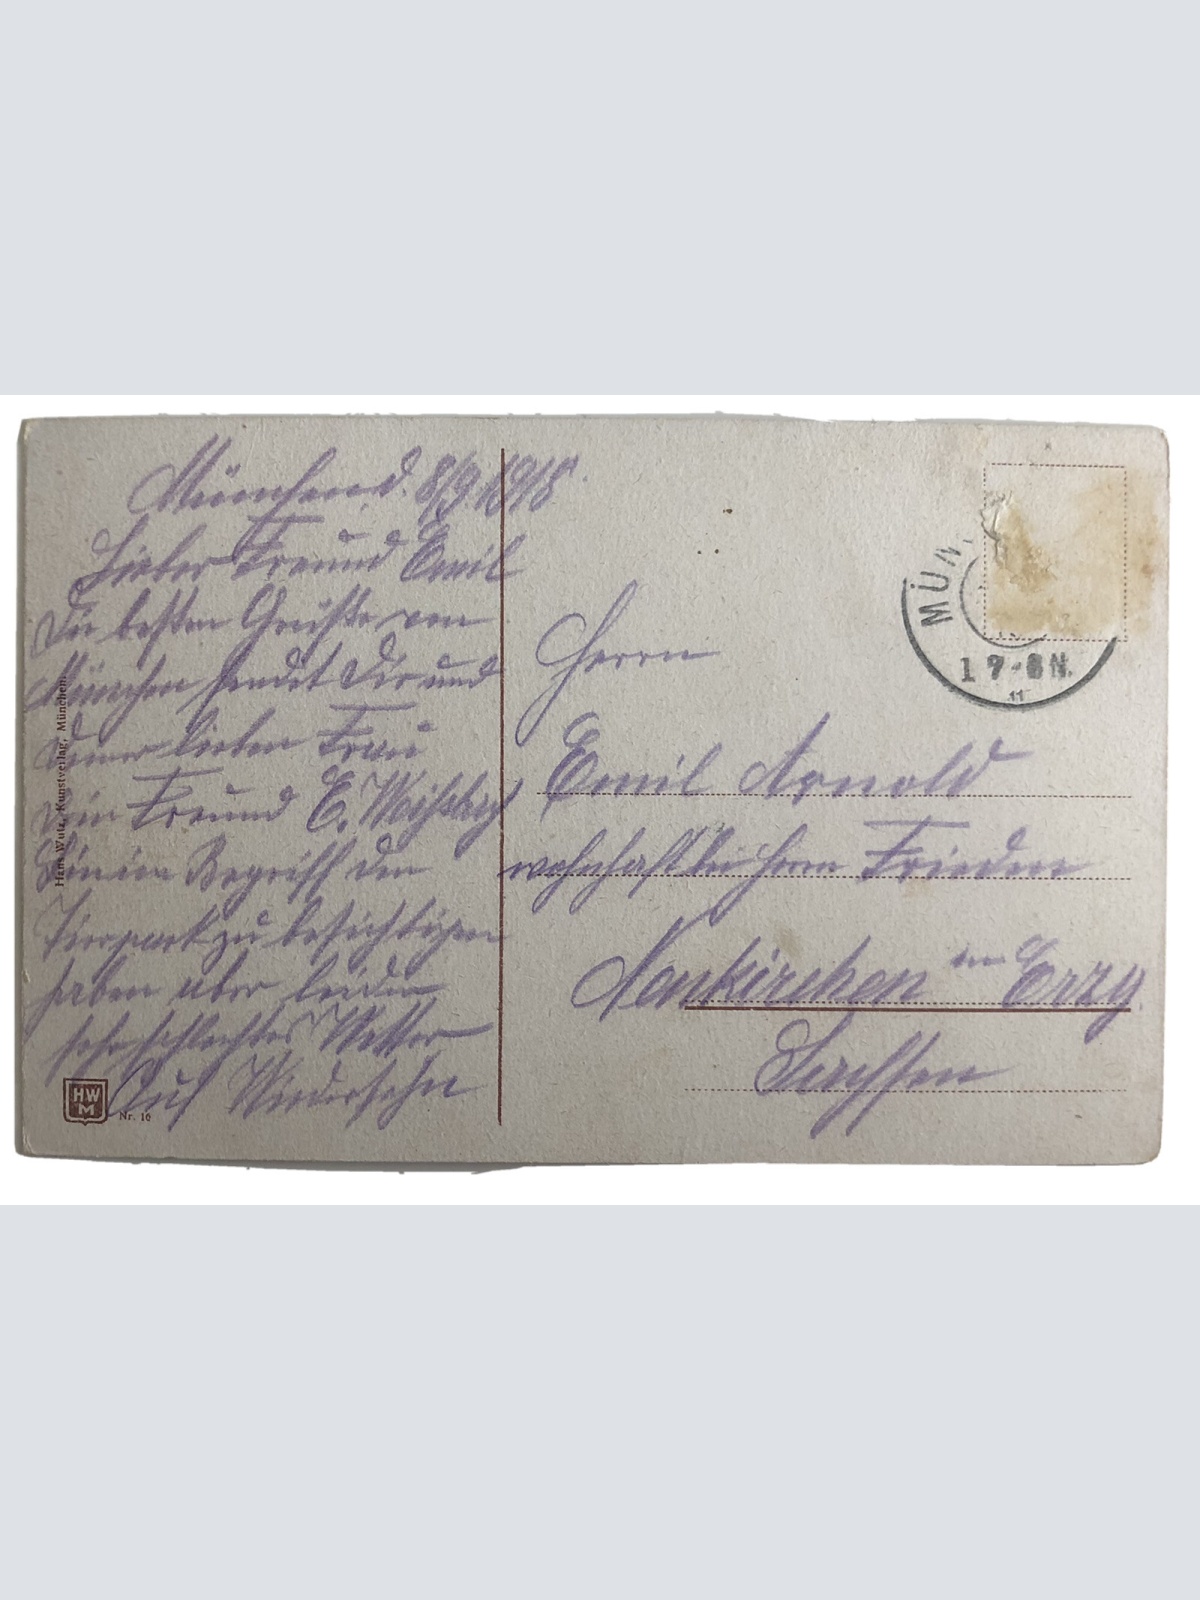 München d. 8/9 1918.
Lieber Freund Emil
Die besten Grüße von
München sendet Dir und
Deiner lieben Frau
Dein Freund E.
Bin im Begriff den
Tierpark zu besichtigen
haben aber leider
sehr schlechtes Wetter
Auf Wiedersehn
Hans Wutz, Kunstverlag, München.
HW
M
Nr. 16
MÜN
1 7-8 N.
Herrn
Emil Arnold
wohnhaft bei Herrn Frieden
Neukirchen im Erzg.
Sachsen